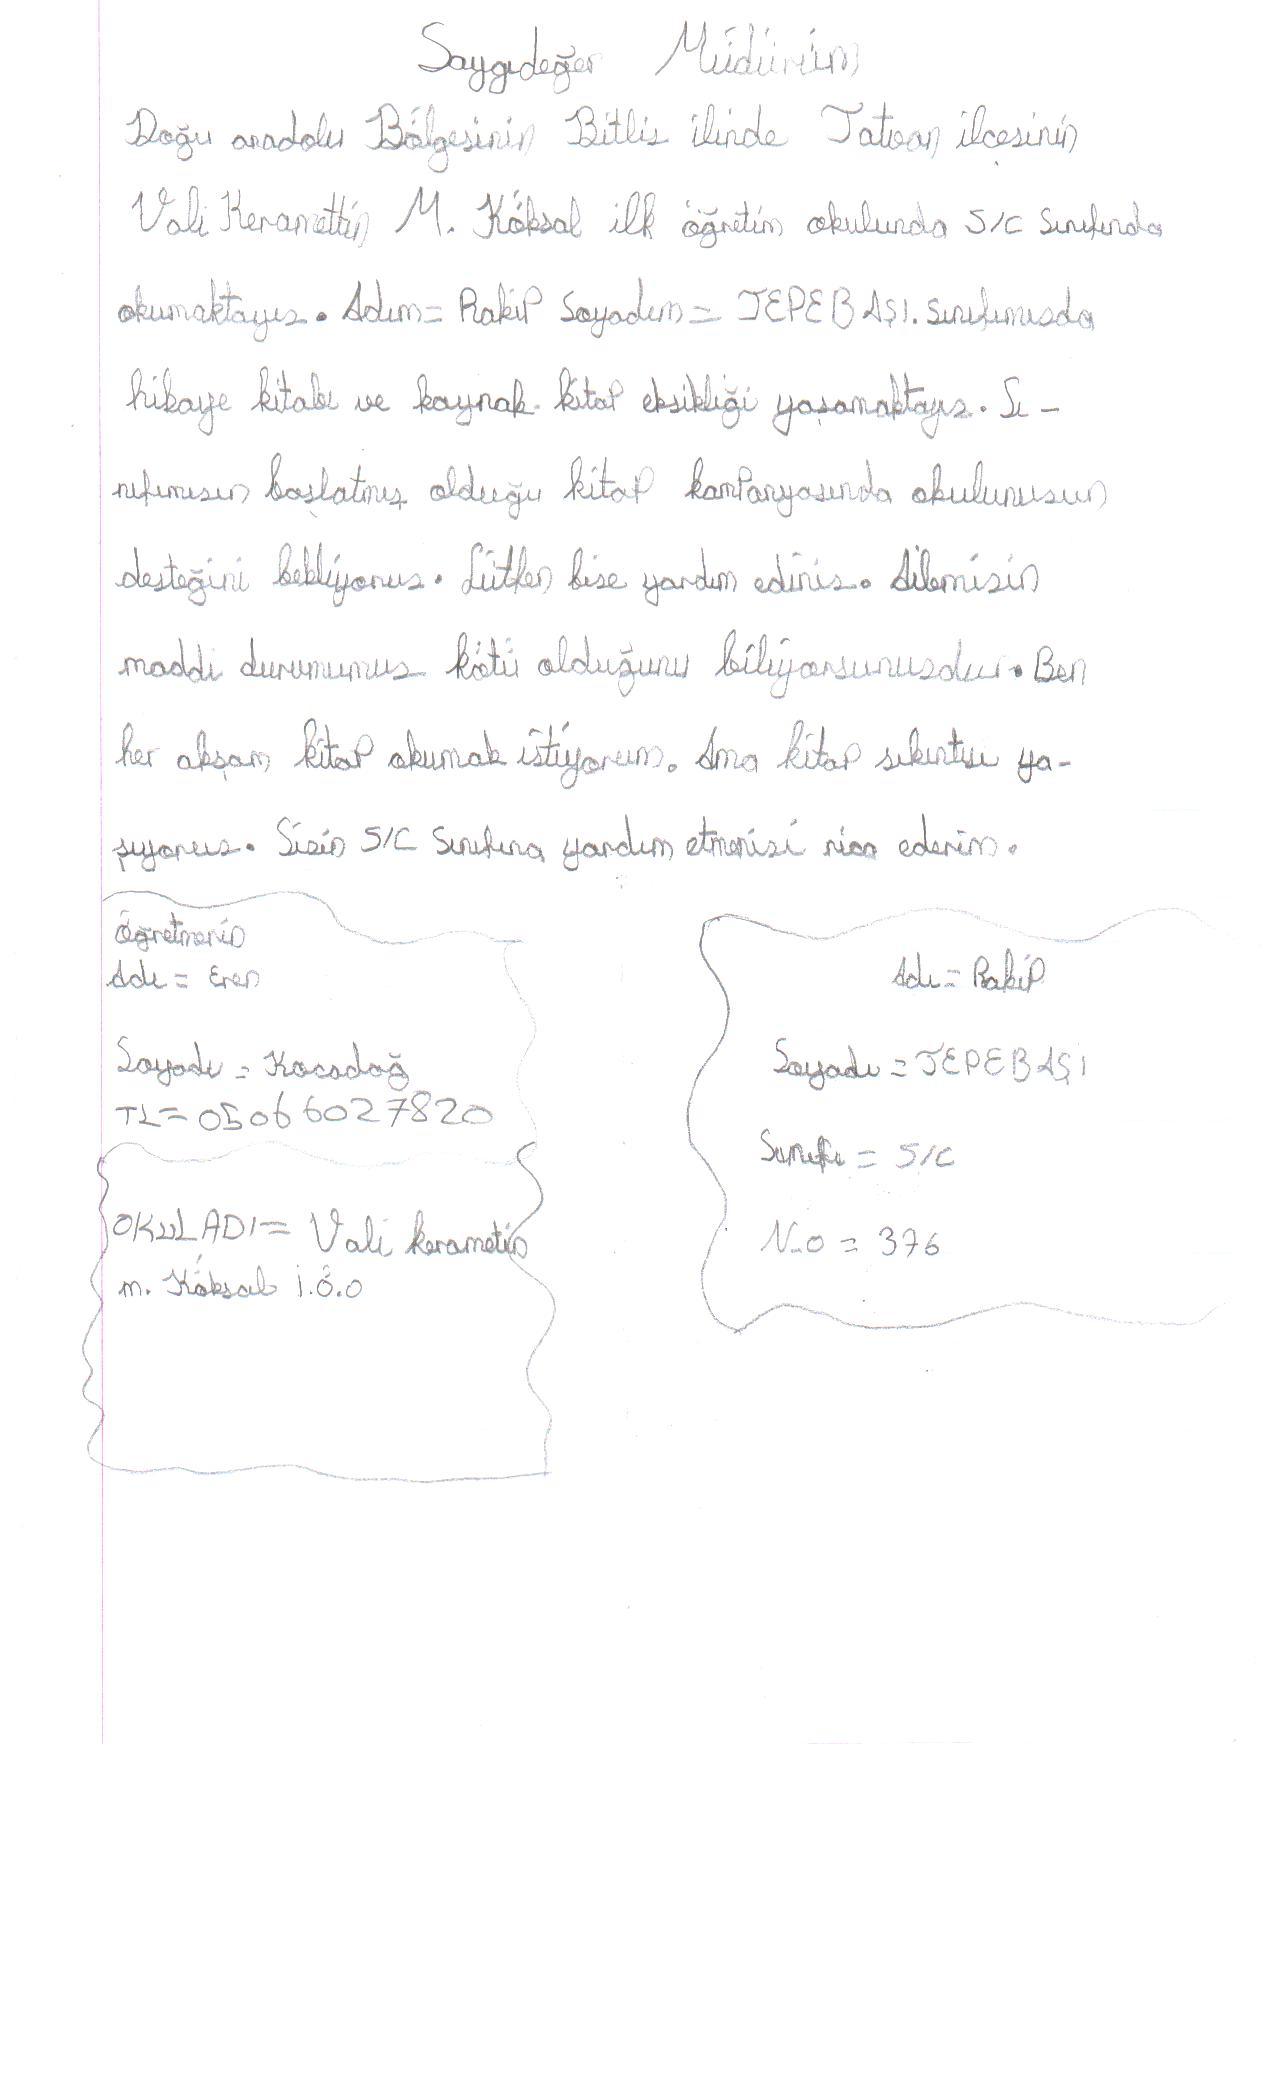 Saygıdeğer Müdürüm
Doğu anadolu Bölgesinin Bitlis ilinde Tatvan ilçesinin
Vali Kerametti̇n M. Köksal ilk öğretim okulunda 5/C sınıfında
okumaktayız. Adım= Rakip Soyadım= TEPEBAŞI. sınıfımızda
hikaye kitabı ve kaynak kitap eksikliği yaşamaktayız. Sı-
nıfımızın başlatmış olduğu kitap kampanyasında okulunuzun
desteğini bekliyoruz. Lütfen bize yardım ediniz. Ailemizin
maddi durumumuz kötü olduğunu biliyorsunuzdur. Ben
her akşam kitap okumak istiyorum. Ama kitap sıkıntısı ya-
şıyoruz. Sizin 5/C Sınıfına yardım etmenizi rica ederim.
Öğretmenin
Adı = Eren
Soyadı = Kocadağ
TL= 05066027820
OKUL ADI= Vali kerametin
m. Köksal i.ö.o
Adı = Rakip
Soyadı = TEPEBAŞI
Sınıfı = 5/C
N-o = 376